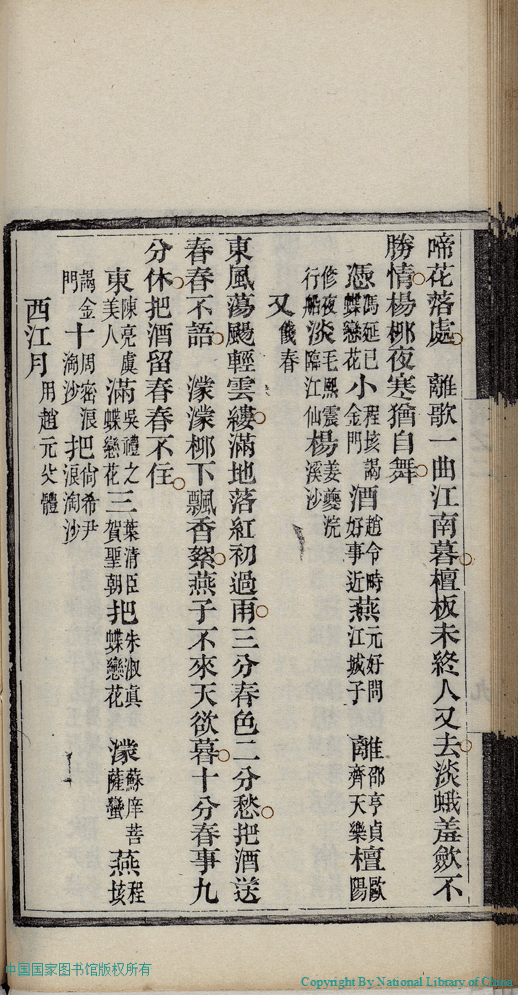 啼花落處 離歌一曲江南暮檀板未終人又去淡蛾羞斂不
勝情楊柳夜寒猶自舞
憑馮延已蝶戀花小程垓謁金門酒趙令畤好事近燕元好問江城子 離邵亨貞齊天樂檀歐陽
修夜行船淡毛熙震臨江仙楊姜夔浣溪沙
又餞春
東風蕩颺輕雲縷滿地落紅初過雨三分春色二分愁把酒送
春春不語 濛濛柳下飄香絮燕子不來天欲暮十分春事九
分休把酒留春春不住
東陳亮虞美人滿吳禮之蝶戀花三葉清臣賀聖朝把朱淑真蝶戀花 濛蘇庠菩薩蠻燕程垓
謁金門十周密浪淘沙把尙希尹浪淘沙
西江月用趙元父體
中国国家图书馆版权所有
Copyright By National Library of China